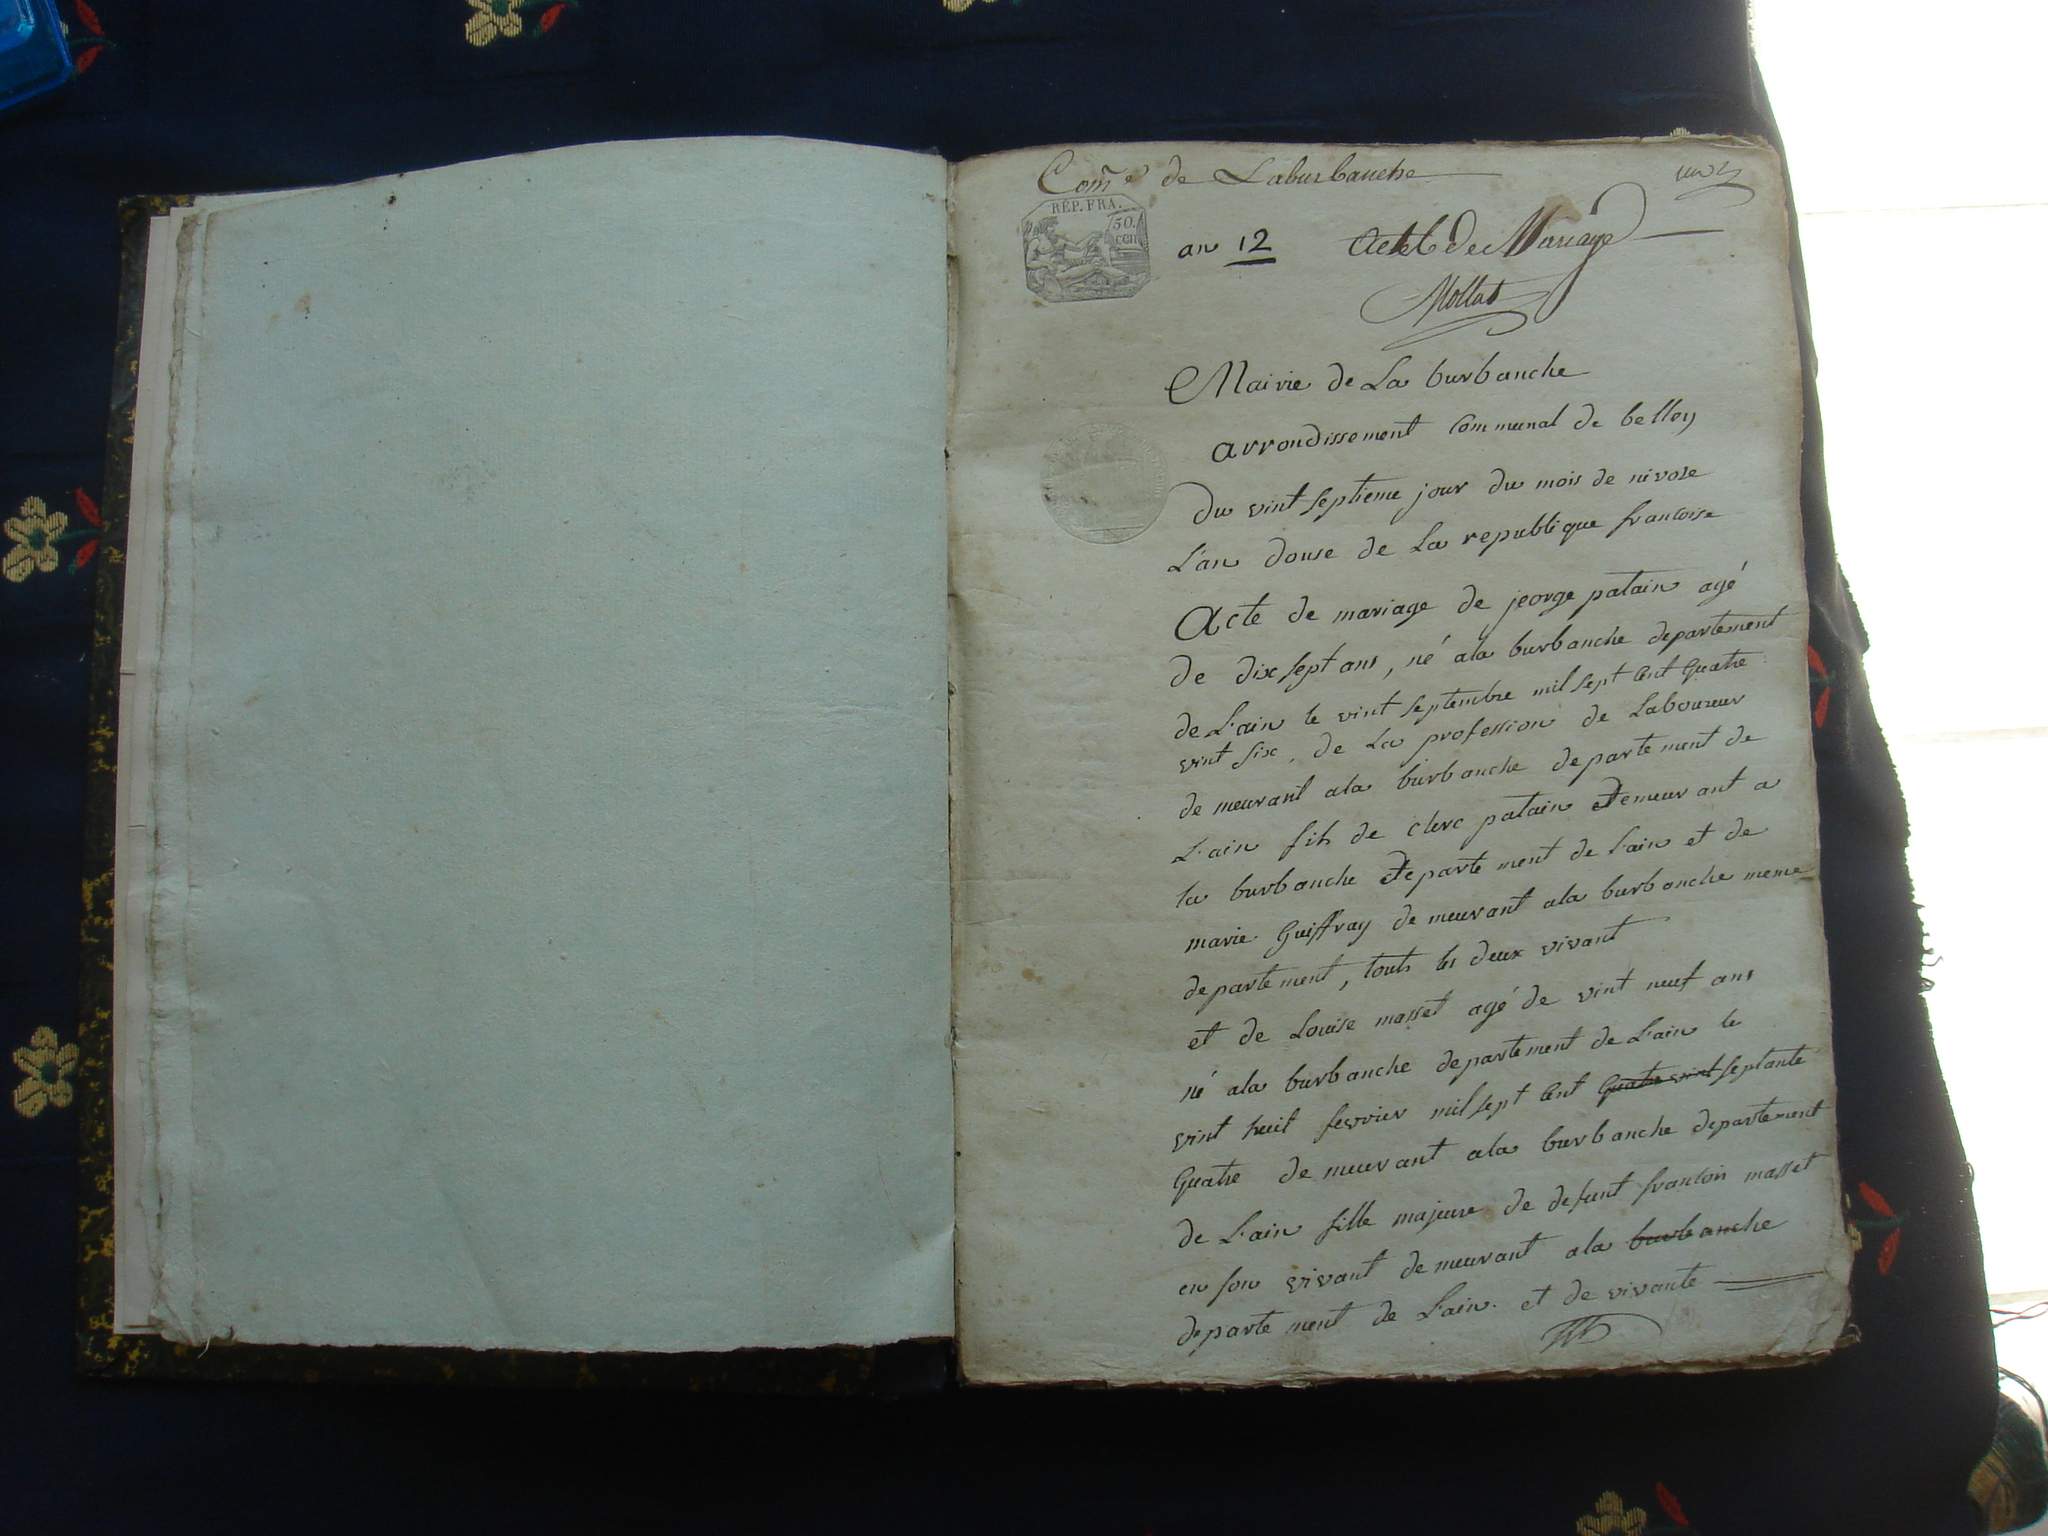 Com.e de Laburbanche
RÉP. FRA.
50.
cen
an 12 Acte de Mariage
Mollat
Mairie de La burbanche
arrondissement communal de belley
du vint septieme jour du mois de nivose
L'an douse de La republique francoise
Acte de mariage de jeorge patain agé
de dix sept ans, né ala burbanche departement
de L'ain le vint septembre mil sept cent quatre
vint six, de La profession de Laboureur
demeurant ala burbanche departement de
L'ain fils de clerc patain demeurant a
la burbanche departement de l'ain et de
marie Guiffray demeurant ala burbanche meme
departement, touts les deux vivant
et de Louise masset agé de vint neuf ans
né ala burbanche departement de L'ain le
vint huit fevrier mil sept cent quatre vint septante
quatre demeurant ala burbanche departement
de L'ain fille majeure de defunt francois masset
en son vivant demeurant ala burbanche
departement de L'ain. et de vivante